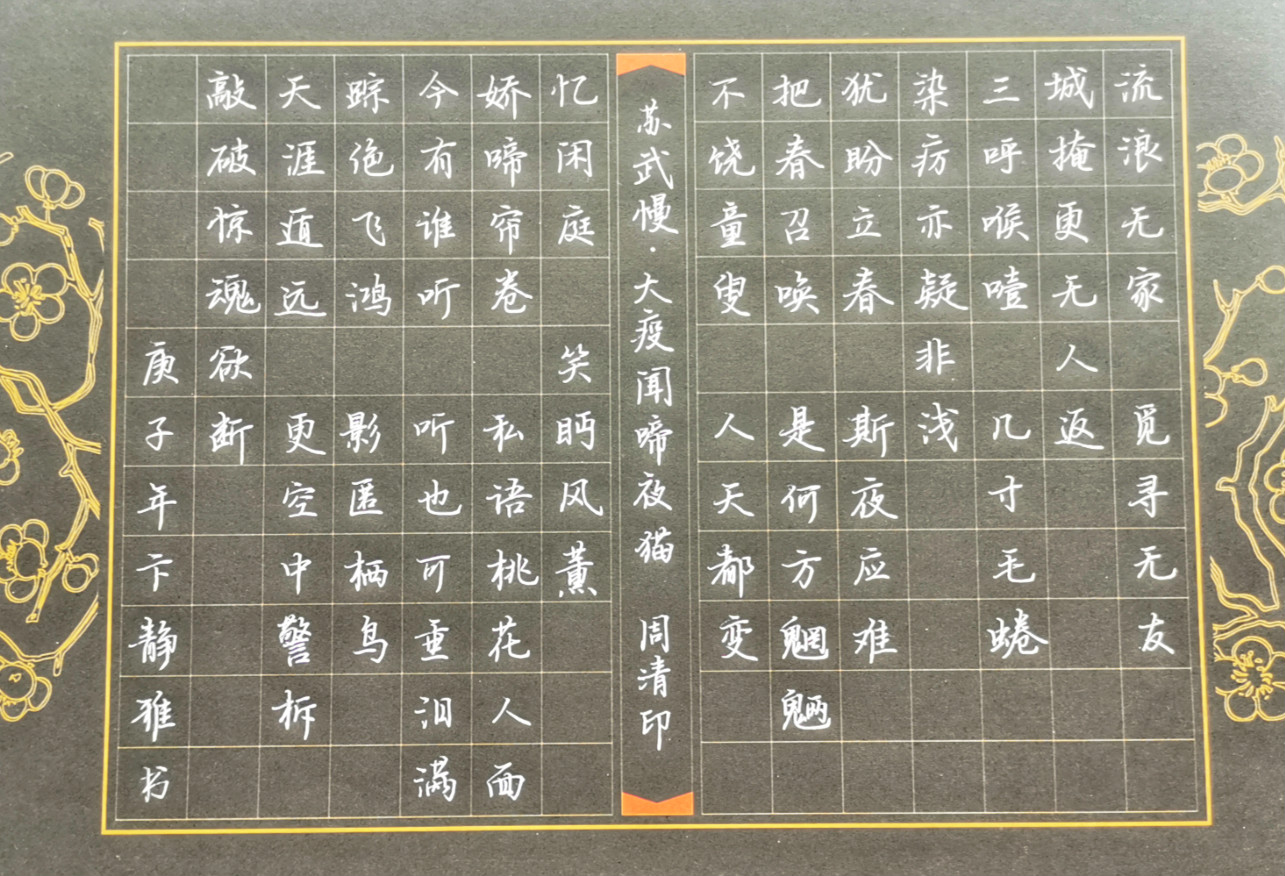 流浪无家 觅寻无友
城掩更无人返
三呼喉噎 几寸毛蜷
染疠亦疑非浅
犹盼立春 斯夜应难
把春召唤 是何方魍魉
不饶童叟 人天都变
苏武慢·大疫闻啼夜猫 周清印
忆闲庭 笑眄风薰
娇啼帘卷 私语桃花人面
今有谁听 听也可垂泪满
踪绝飞鸿 影匿栖鸟
天涯遁远 更空中警柝
敲破惊魂欲断
庚子年卞静雅书